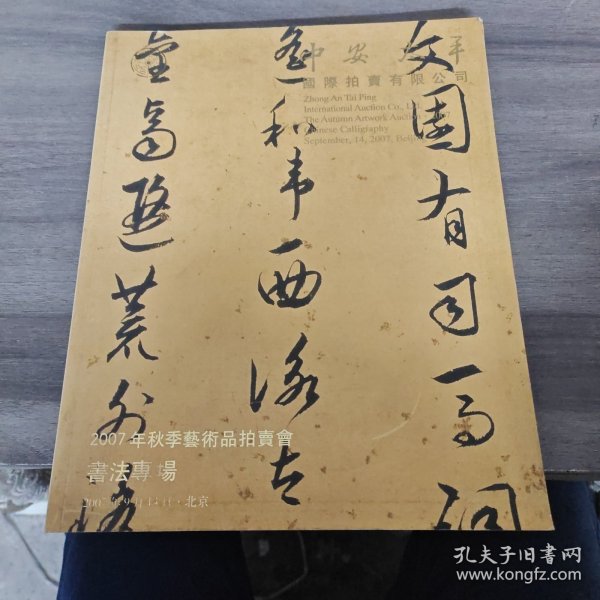 中安太平
國際拍賣有限公司
Zhong An Tai Ping
International Auction Co., L
The Autumn Artwork Auction
Chinese Calligraphy
September, 14, 2007, Beijing
文園有司馬詞
和韋西
荒外
2007年秋季藝術品拍賣會
書法專場
北京
孔夫子旧书网
www.kongfz.com